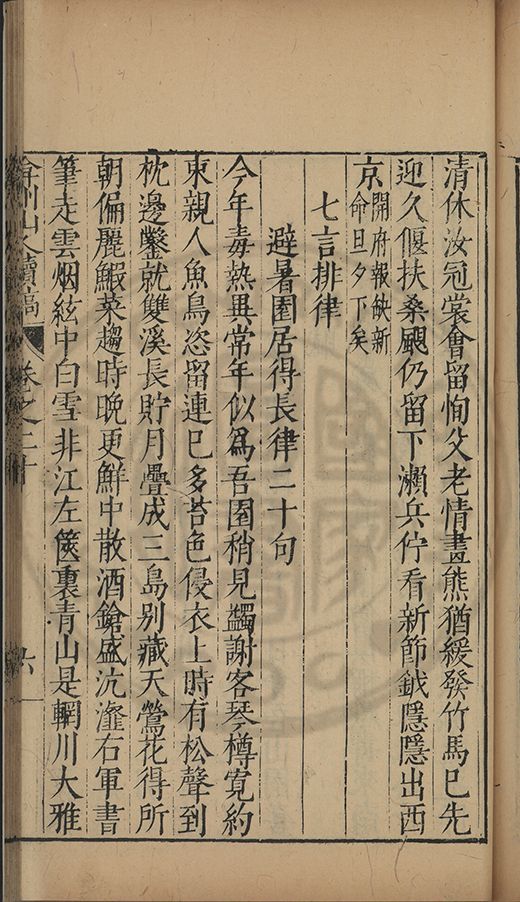 清休汝冠裳會留恂父老情畫熊猶緩發竹馬巳先
迎久偃扶桑颶仍留下瀨兵佇看新節鉞隱隱出西
京開府報缺新
命旦夕下矣
七言排律
避暑園居得長律二十句
今年毒熱異常年似爲吾園稍見蠲謝客琴樽寛約
束親人魚鳥恣留連巳多苔色侵衣上時有松聲到
枕邊鑿就雙溪長貯月疊成三島别藏天鶯花得所
朝偏麗鰕菜趨時晚更鮮中散酒鎗盛沆瀣右軍書
筆走雲烟絃中白雪非江左篋裏青山是輞川大雅
弇州山人續稿 卷之二十 六